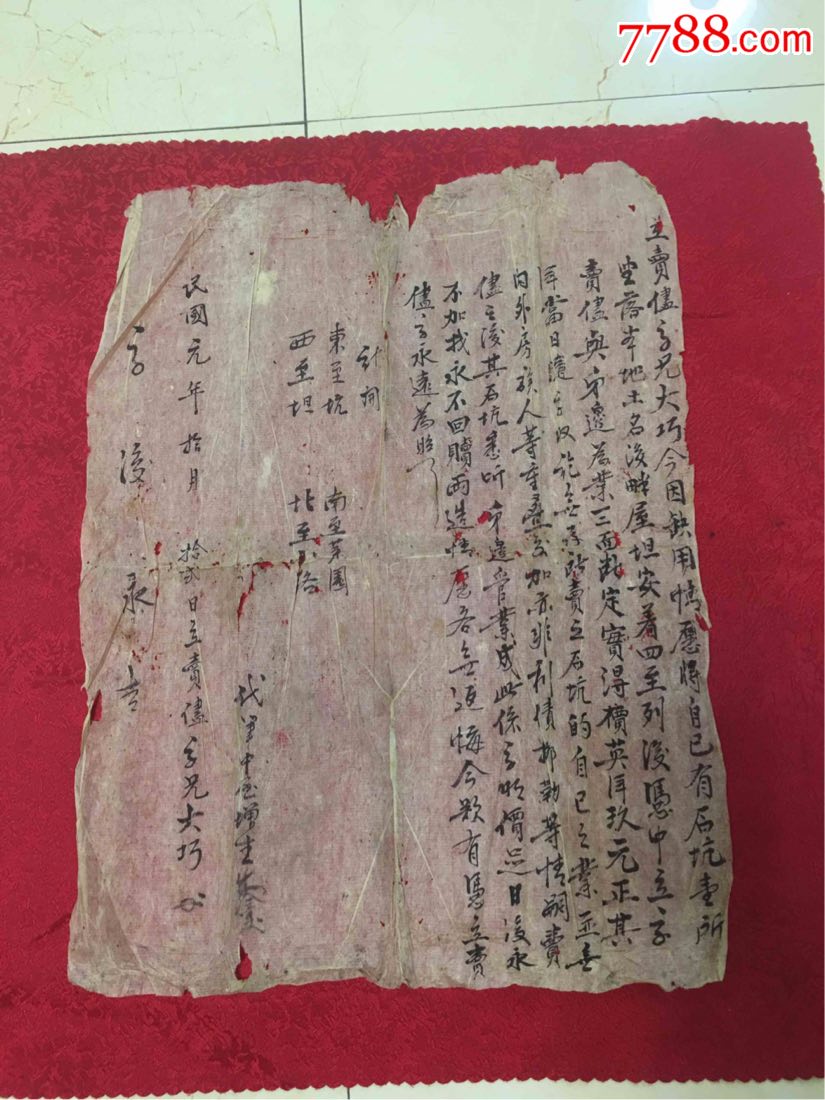 7788.com
立賣儘字兄大巧今因缺用情愿將自己有石坑壹所
坐落本地土名後畔屋坦安着四至列後憑中立字
賣儘與弟邊為業三面訂定實得價英洋玖元正其
洋當日隨字收訖無存所賣之石坑的自己之業並無
内外房族人等重疊交加亦非利債抑勒等情嗣賣
儘之後其石坑悉听弟邊管業成此係言斷價足日後永
不加找永不回贖兩造情愿各無返悔今欲有憑立賣
儘字永遠為照
計開
東至坑 南至菜園
西至坦 北至路
代筆中 增生
民國元年拾月 拾弍日立賣儘字兄大巧
字 後 永 吉